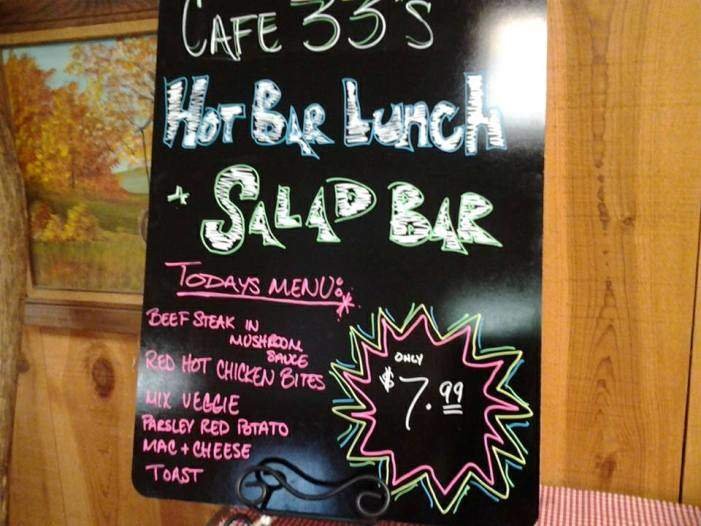 CAFE 33'S
HOT BAR LUNCH
+ SALAD BAR
TODAYS MENU:
BEEF STEAK IN
MUSHROOM
SAUCE
RED HOT CHICKEN BITES
MIX VEGGIE
PARSLEY RED POTATO
MAC + CHEESE
TOAST
ONLY
$7.99